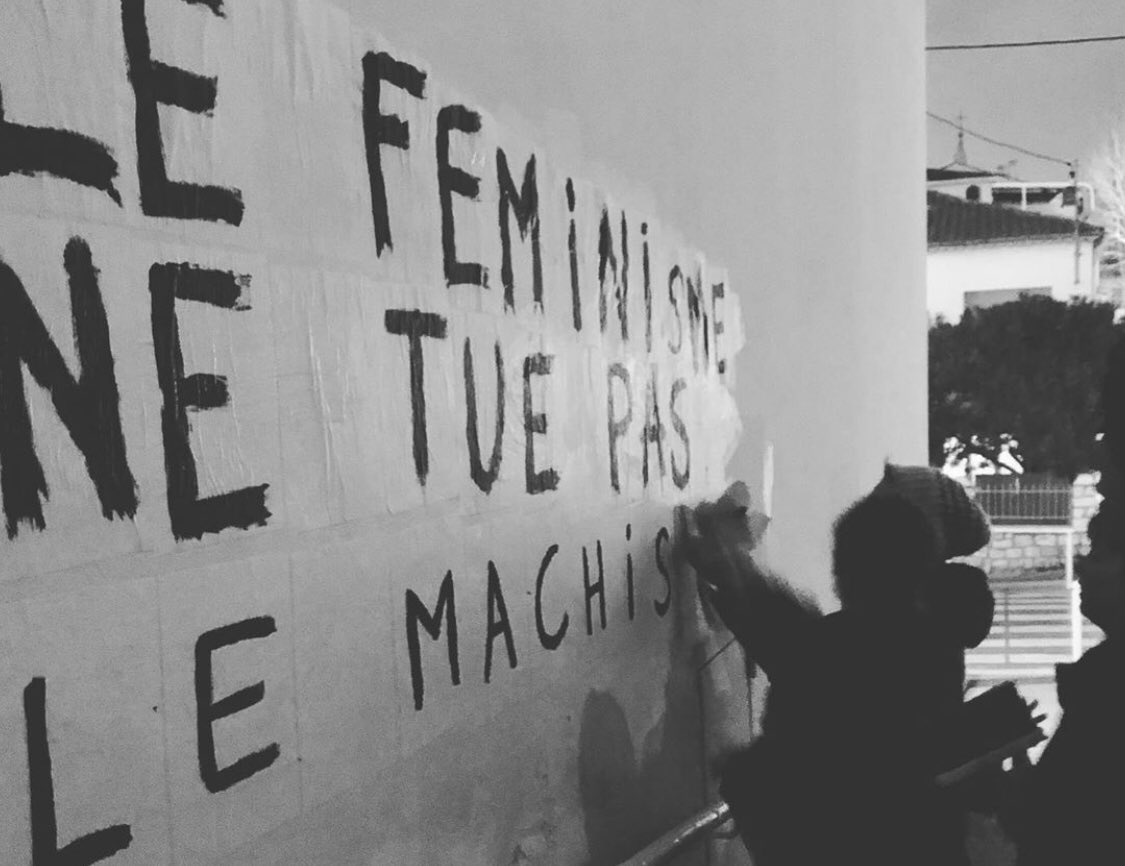 LE FEMiNiSME
NE TUE PAS
LE MACHiS